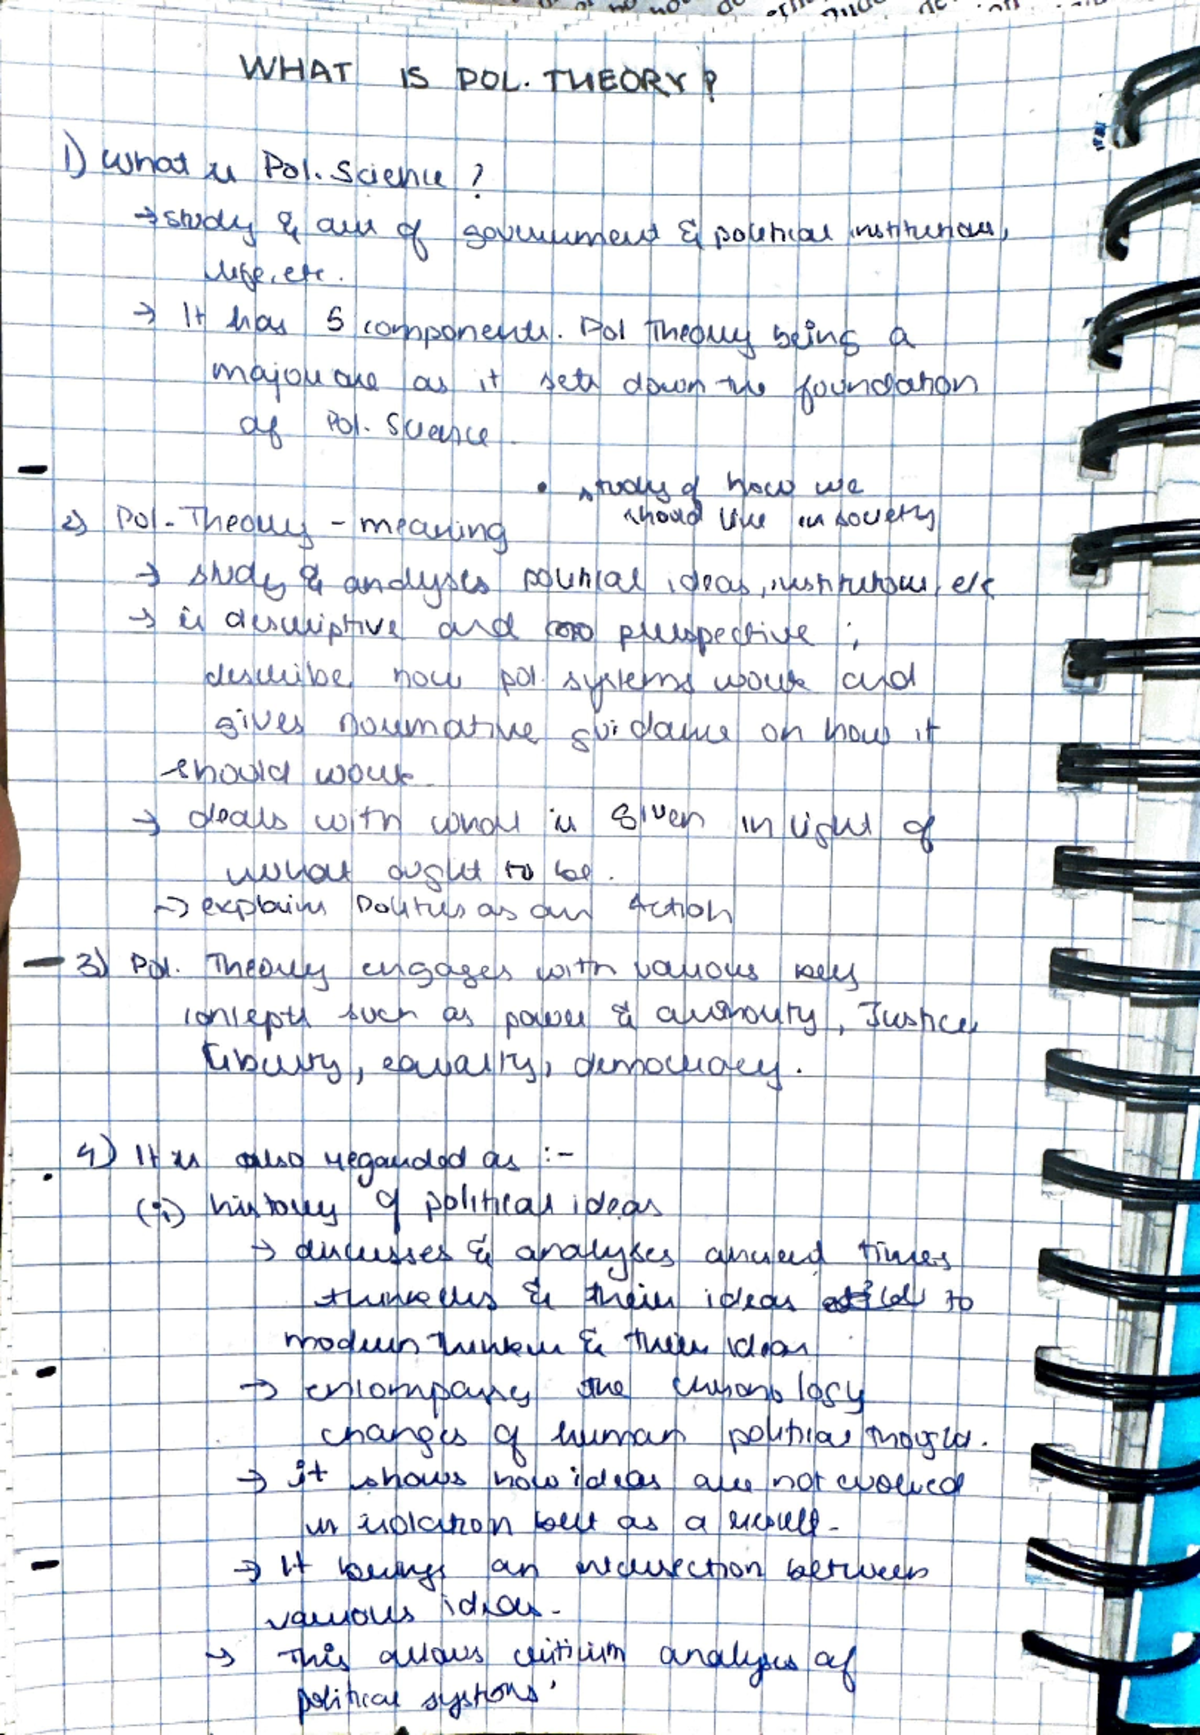 WHAT IS POL. THEORY?
1) What is Pol. Science?
→ study & art of government & political institutions,
life, etc.
→ It has 5 components. Pol Theory being a
major one as it sets down the foundation
of Pol. Science.
• study of how we
should live in society
2) Pol. Theory - meaning
→ study & analyses political ideas, institutions, etc
→ is descriptive and perspective ;
describe how pol. systems work and
gives normative guidance on how it
should work.
→ deals with what is given in light of
what ought to be.
→ explains Politics as an Action
3) Pol. Theory engages with various key
concepts such as power & authority, Justice
liberty, equality, democracy.
4) It is also regarded as :-
(i) history of political ideas
→ discusses & analyses ancient times
thinkers & their ideas to
modern thinkers & their ideas
→ encompassing the chronology
changes of human political thought.
→ it shows how ideas are not evolved
in isolation but as a result.
→ It brings an intersection between
various ideas.
→ This allows criticism analysis of
political systems.